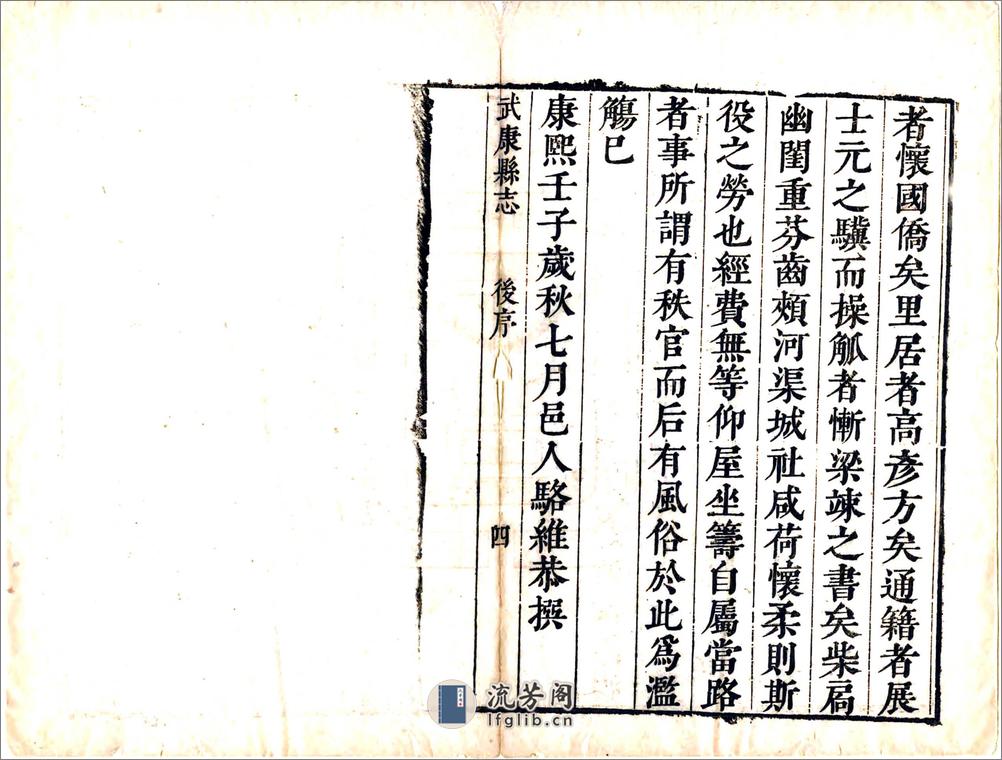 者懷國僑矣里居者高彥方矣通籍者展
士元之驥而操觚者慚梁竦之書矣柴扃
幽閨重芬齒頰河渠城社咸荷懷柔則斯
役之勞也經費無等仰屋坐籌自屬當路
者事所謂有秩官而后有風俗於此為濫
觴已
康熙壬子歲秋七月邑人駱維恭撰
武康縣志 後序 四
流芳阁
lfglib.cn